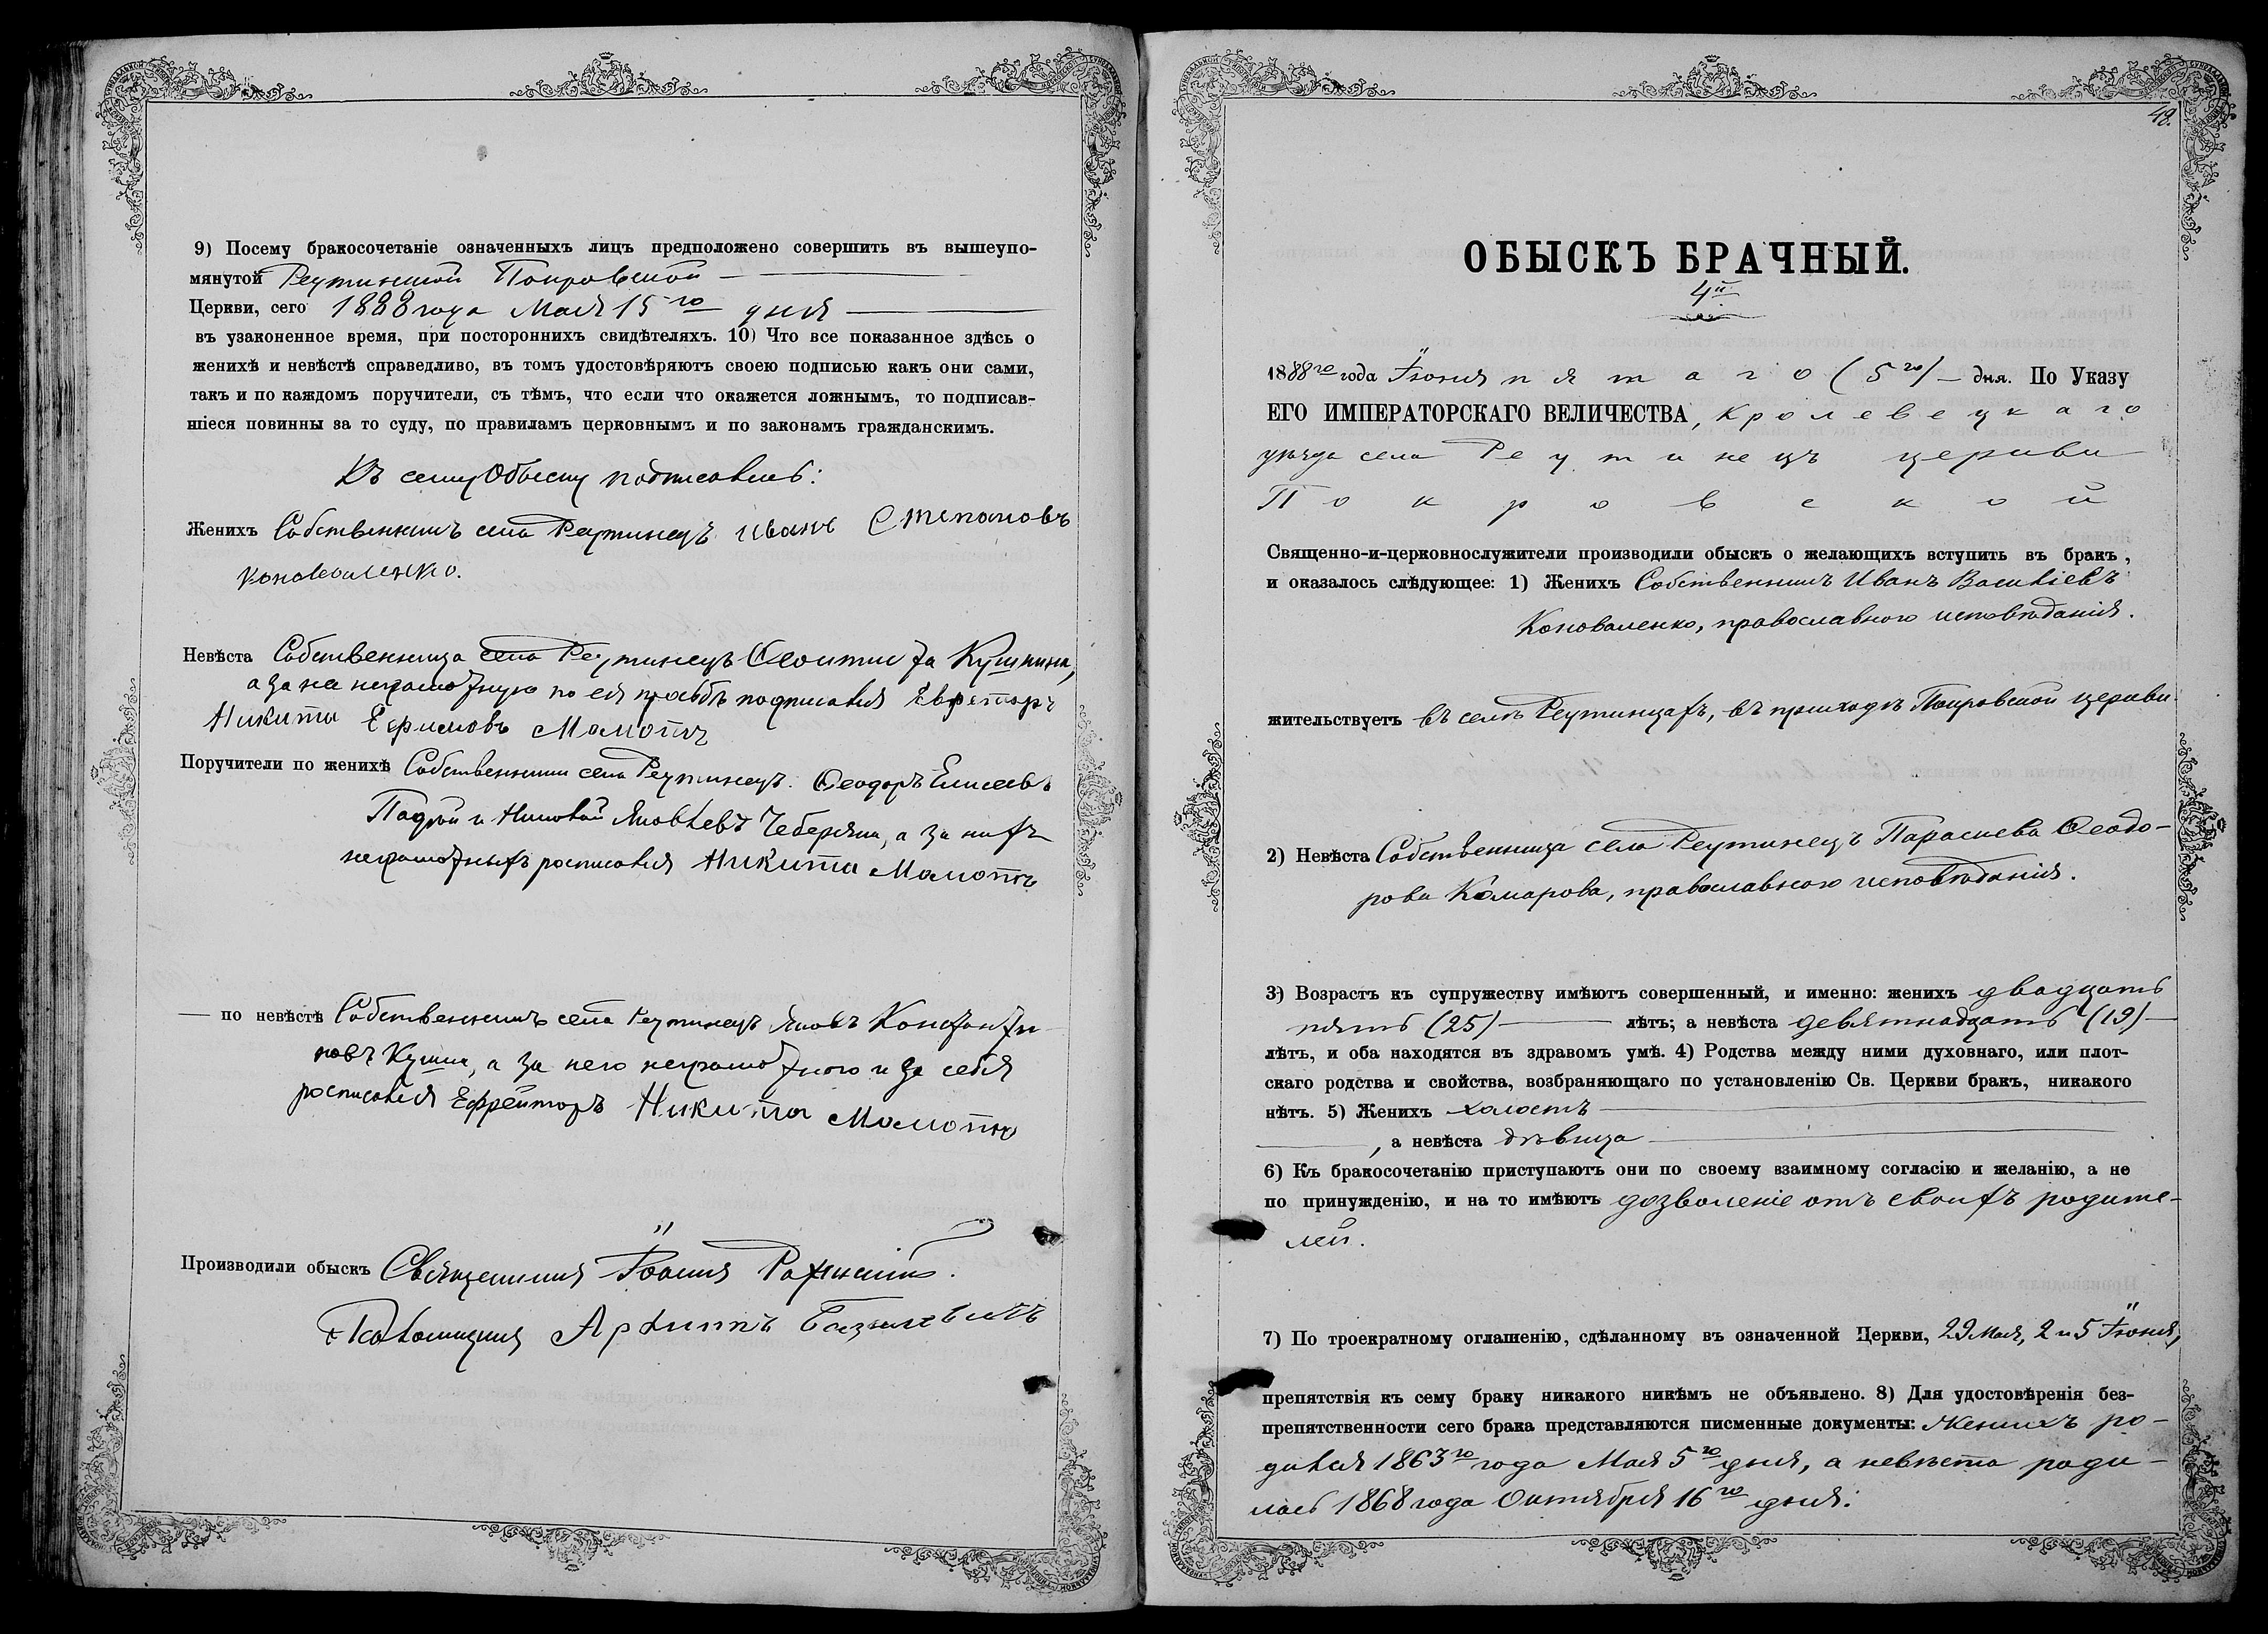 9) Посему бракосочетаніе означенныхъ лицъ предположено совершить въ вышеупо-
мянутой Реутинской Покровской
Церкви, сего 1888 года Мая 15го дня
въ узаконенное время, при постороннихъ свидѣтеляхъ. 10) Что все показанное здѣсь о
женихѣ и невѣстѣ справедливо, въ томъ удостовѣряютъ своею подписью какъ они сами,
такъ и по каждомъ поручители, съ тѣмъ, что если что окажется ложнымъ, то подписав-
шіеся повинны за то суду, по правиламъ церковнымъ и по законамъ гражданскимъ.
Къ сему Обыску подписались:
Женихъ Собственникъ села Реутинецъ Иванъ Степановъ
Коноваленко.
Невѣста Собственница села Реутинецъ
а за нея неграмотную по ея прозьбѣ подписался Ефрейторъ
Никита Ефимовъ Мамота
Поручители по женихѣ Собственники села Реутинецъ: Ѳеодоръ Елисеевъ
и Николай Яковлевъ Чеберяка, а за нихъ
неграмотныхъ росписался Никита Мамота
— по невѣстѣ Собственникъ села Реутинецъ Яковъ Константи
новъ а за него неграмотного и за себя
росписался Ефрейторъ Никита Мамота
Производили обыскъ Священникъ Іоаннъ
Псаломщикъ
49.
ОБЫСКЪ БРАЧНЫЙ.
4й
1888го года Іюня пятаго (5го) — дня. По Указу
ЕГО ИМПЕРАТОРСКАГО ВЕЛИЧЕСТВА, Кролевецкаго
уѣзда села Реутинецъ церкви
Покровской
Священно-и-церковнослужители производили обыскъ о желающихъ вступить въ бракъ,
и оказалось слѣдующее: 1) Женихъ Собственникъ Иванъ Василіевъ
Коноваленко, православного исповѣданія.
жительствуетъ въ селѣ Реутинцахъ, въ приходѣ Покровской церкви.
2) Невѣста Собственница села Реутинецъ Параскева Ѳеодо-
рова Комарова, православного исповѣданія.
3) Возрастъ къ супружеству имѣютъ совершенный, и именно: женихъ двадцать
пять (25) — лѣтъ; а невѣста девятнадцать (19) —
лѣтъ, и оба находятся въ здравомъ умѣ. 4) Родства между ними духовнаго, или плот-
скаго родства и свойства, возбраняющаго по установленію Св. Церкви бракъ, никакого
нѣтъ. 5) Женихъ холостъ
, а невѣста дѣвица
6) Къ бракосочетанію приступаютъ они по своему взаимному согласію и желанію, а не
по принужденію, и на то имѣютъ дозволеніе отъ своихъ родите-
лей.
7) По троекратному оглашенію, сдѣланному въ означенной Церкви, 29 Мая, 2 и 5 Іюня,
препятствія къ сему браку никакого никѣмъ не объявлено. 8) Для удостовѣренія без-
препятственности сего брака представляются писменные документы: Женихъ ро-
дился 1863го года Мая 5го дня, а невѣста роди-
лась 1868 года Октября 16го дня.